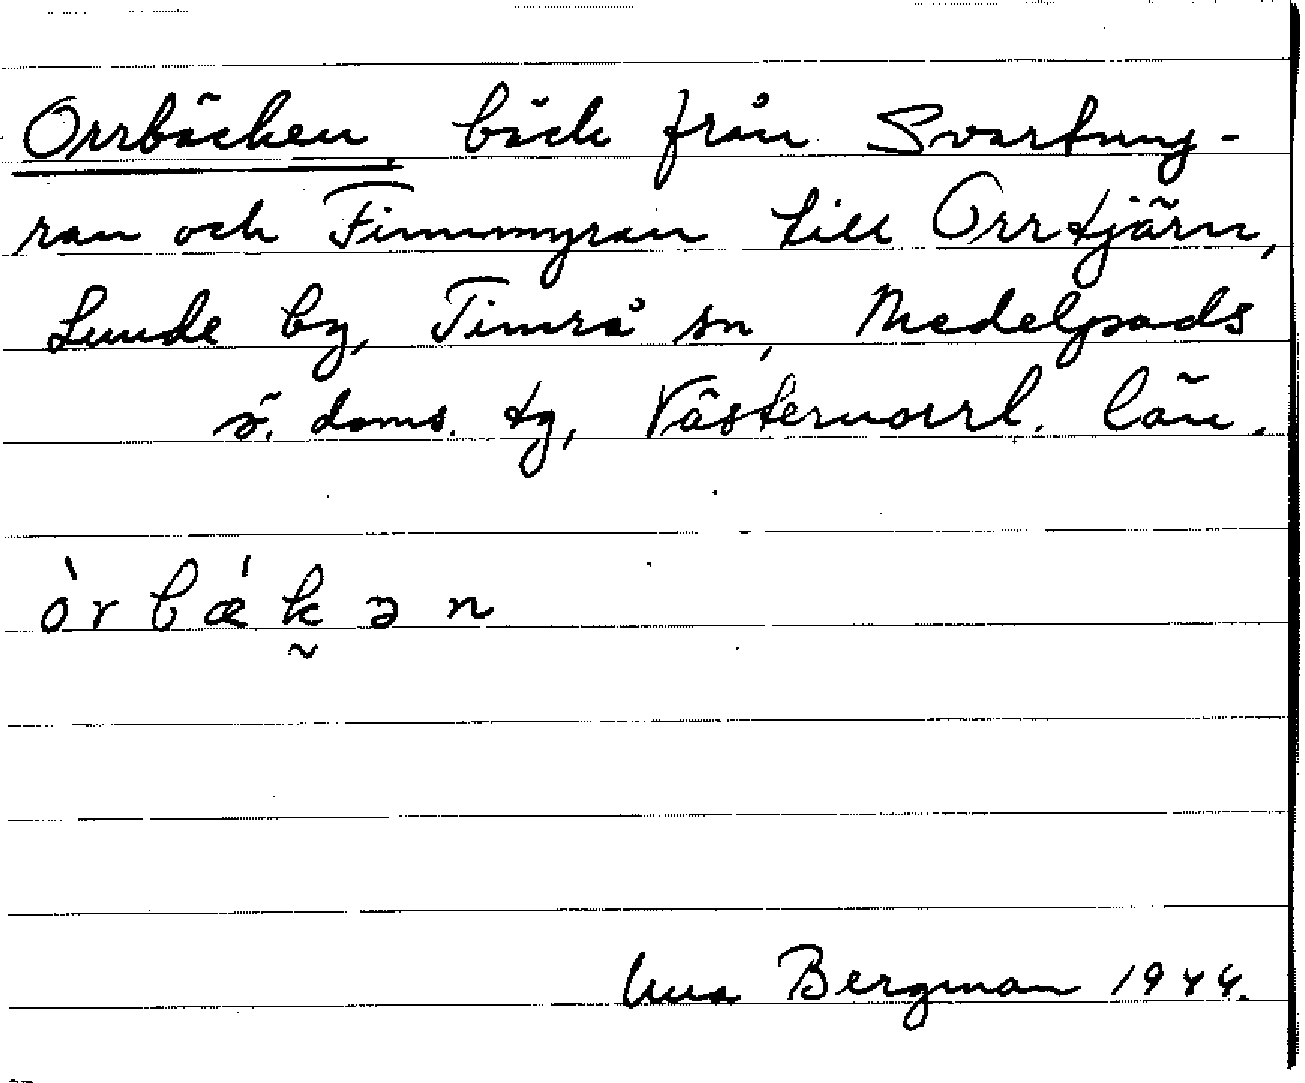 Orrbäcken, bäck från Svartmy-
ran och Finnmyran till Orrtjärn,
Lunde by, Timrå sn, Medelpads
ö. doms. tg, Västernorrl. län.
òrbǽk̰ən
Bergman 1944.